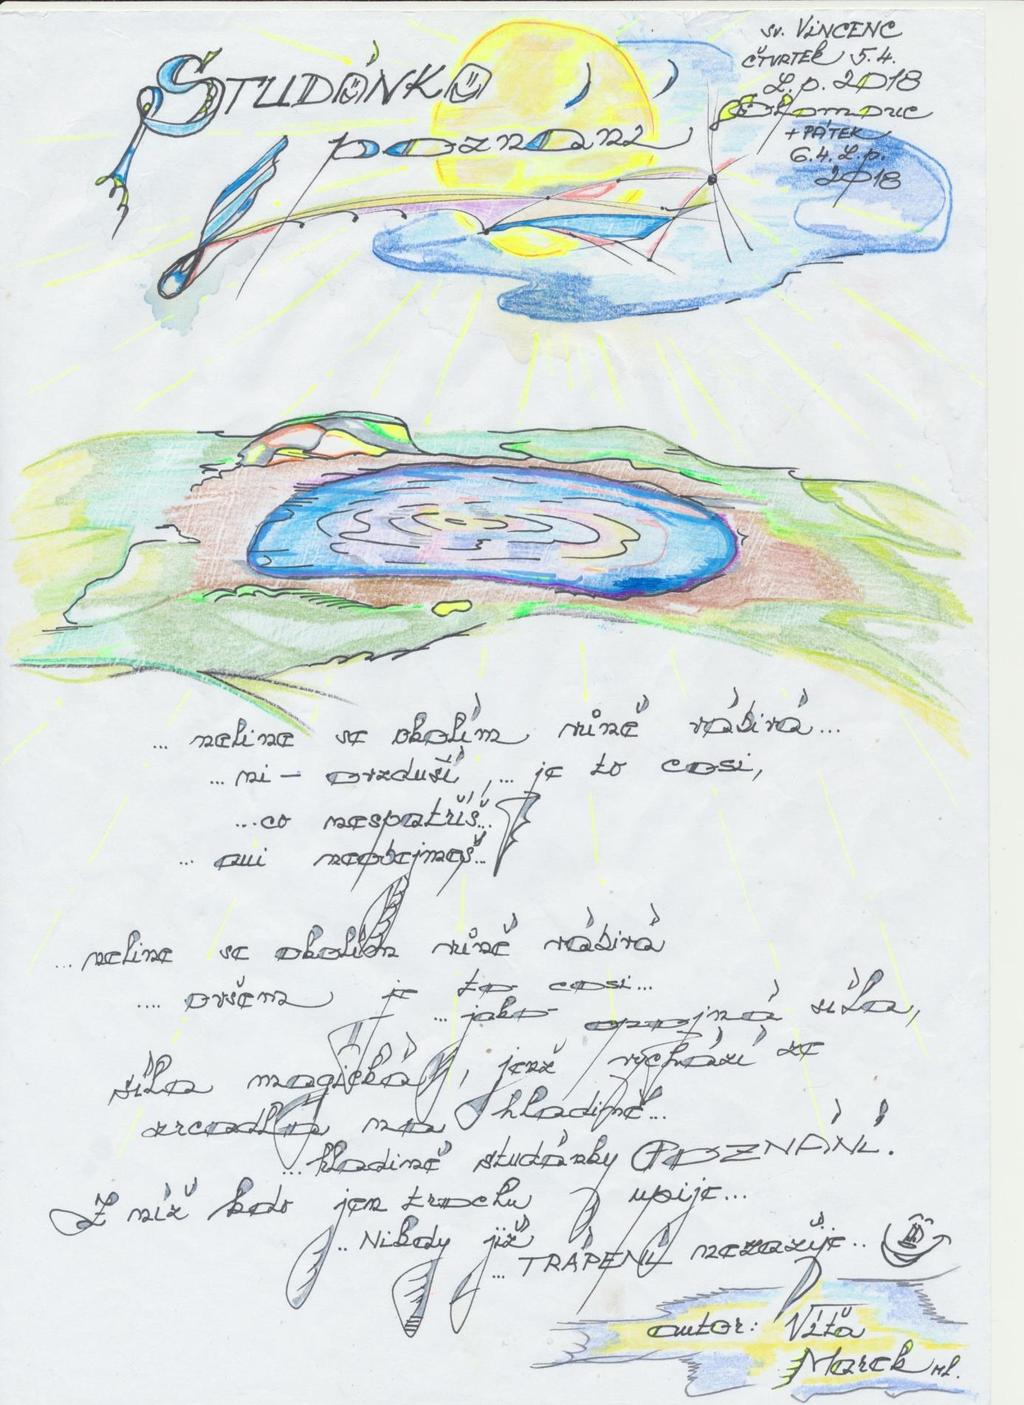 STUDÁNKO
poznání
sv. VINCENC
ČTVRTEK 5.4.
L.p. 2018
Olomouc
+ PÁTEK
6.4. L.p.
2018
... neline se okolím vůně vábivá...
... ni - ovzduší, ... je to cosi,
... co nespatříš...
... ani neobejmeš...
... neline se okolím vůně vábivá
.... ovšem je to cosi...
... jako opojná síla,
síla magická, jenž vychází ze
zrcadla na hladině...
... hladině studánky POZNÁNÍ.
Z níž kdo jen trochu upije...
.. Nikdy již
... TRÁPENÍ nezažije..
autor: Víťa
Marek ml.